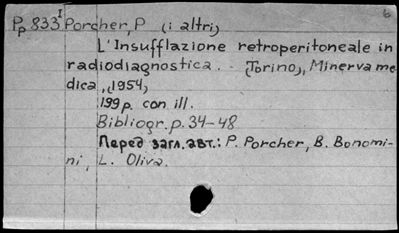 Pp833 I Porcher, P (i altri)
L'Insufflazione retroperitoneale in
radiodiagnostica. (Torino), Minerva me
dica, (1954)
199p. con ill.
Bibliogr. p. 34-48
Перед загл. авт.: P. Porcher, B. Bonomi-
ni, L. Oliva.